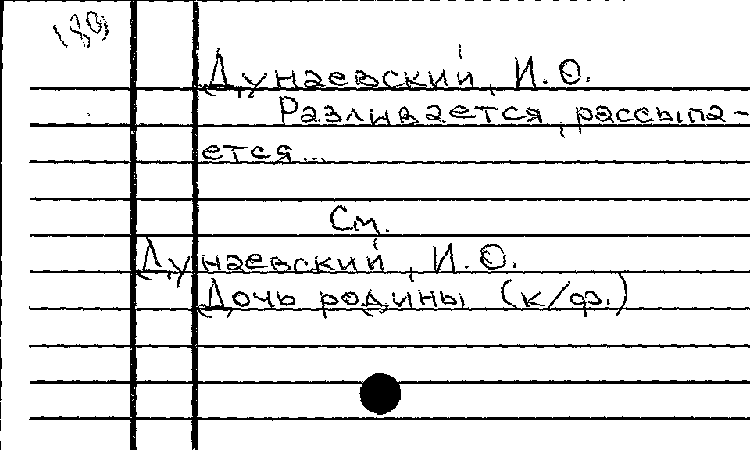 189
Дунаевский, И.О.
Разливается, рассыпа-
ется...
См.
Дунаевский, И.О.
Дочь родины (к/ф.)